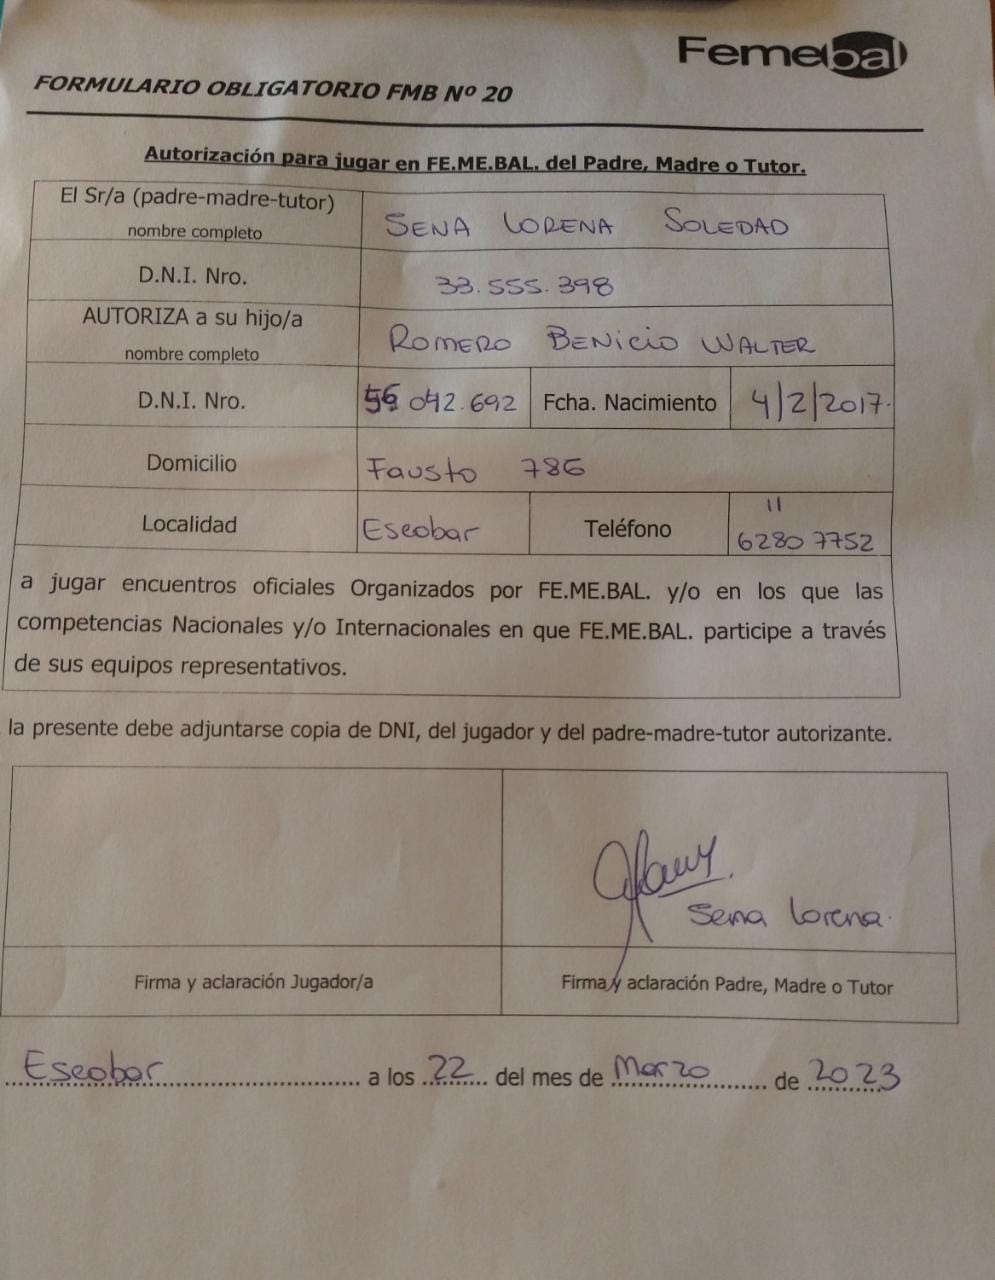 Femebal
FORMULARIO OBLIGATORIO FMB Nº 20
Autorización para jugar en FE.ME.BAL. del Padre, Madre o Tutor.
El Sr/a (padre-madre-tutor)
nombre completo
SENA LORENA SOLEDAD
D.N.I. Nro.
33.555.398
AUTORIZA a su hijo/a
nombre completo
ROMERO BENICIO WALTER
D.N.I. Nro.
042.692
Fcha. Nacimiento
4/2/2017.
Domicilio
Fausto 786
Localidad
Escobar
Teléfono
11
6280 7752
a jugar encuentros oficiales Organizados por FE.ME.BAL. y/o en los que las
competencias Nacionales y/o Internacionales en que FE.ME.BAL. participe a través
de sus equipos representativos.
la presente debe adjuntarse copia de DNI, del jugador y del padre-madre-tutor autorizante.
Sena Lorena.
Firma y aclaración Jugador/a
Firma y aclaración Padre, Madre o Tutor
Escobar a los 22 del mes de Marzo de 2023